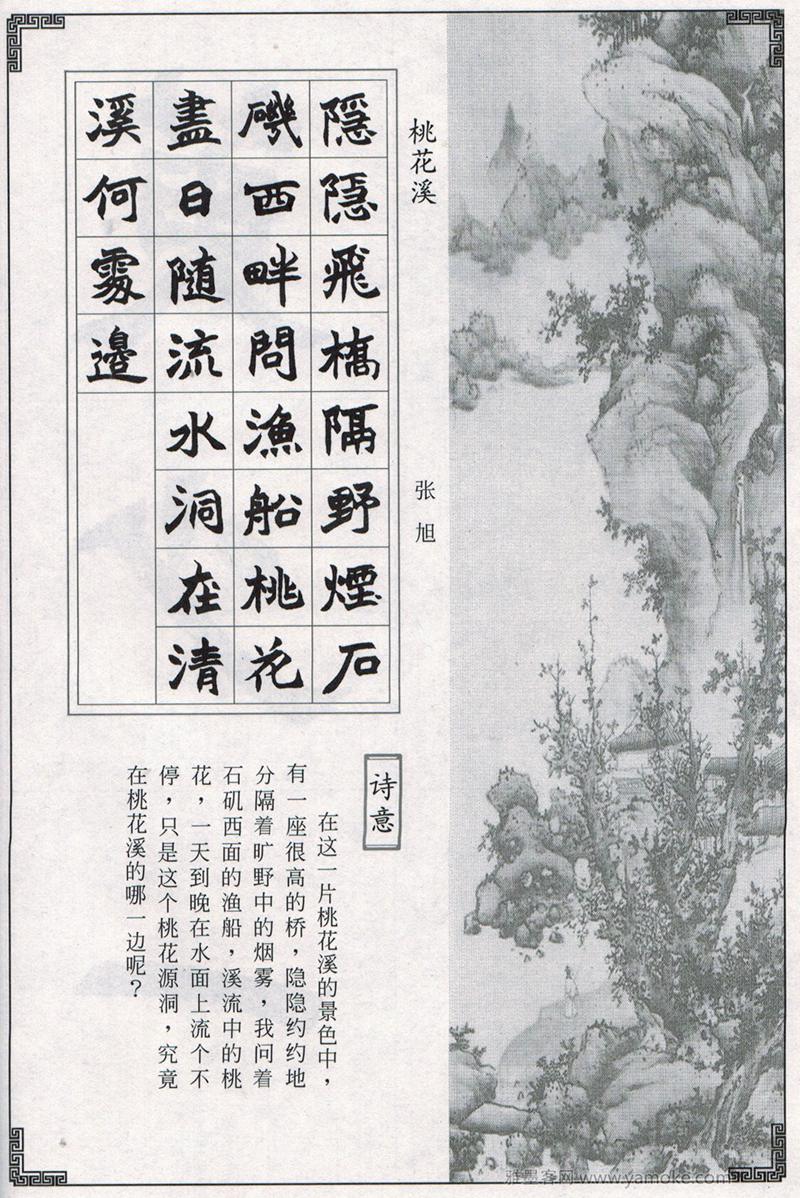 桃花溪
张旭
隱隱飛橋隔野煙石
磯西畔問漁船桃花
盡日隨流水洞在清
溪何處邊
诗意
在这一片桃花溪的景色中，
有一座很高的桥，隐隐约约地
分隔着旷野中的烟雾，我问着
石矶西面的渔船，溪流中的桃
花，一天到晚在水面上流个不
停，只是这个桃花源洞，究竟
在桃花溪的哪一边呢？
雅墨客网-www.yamoke.com